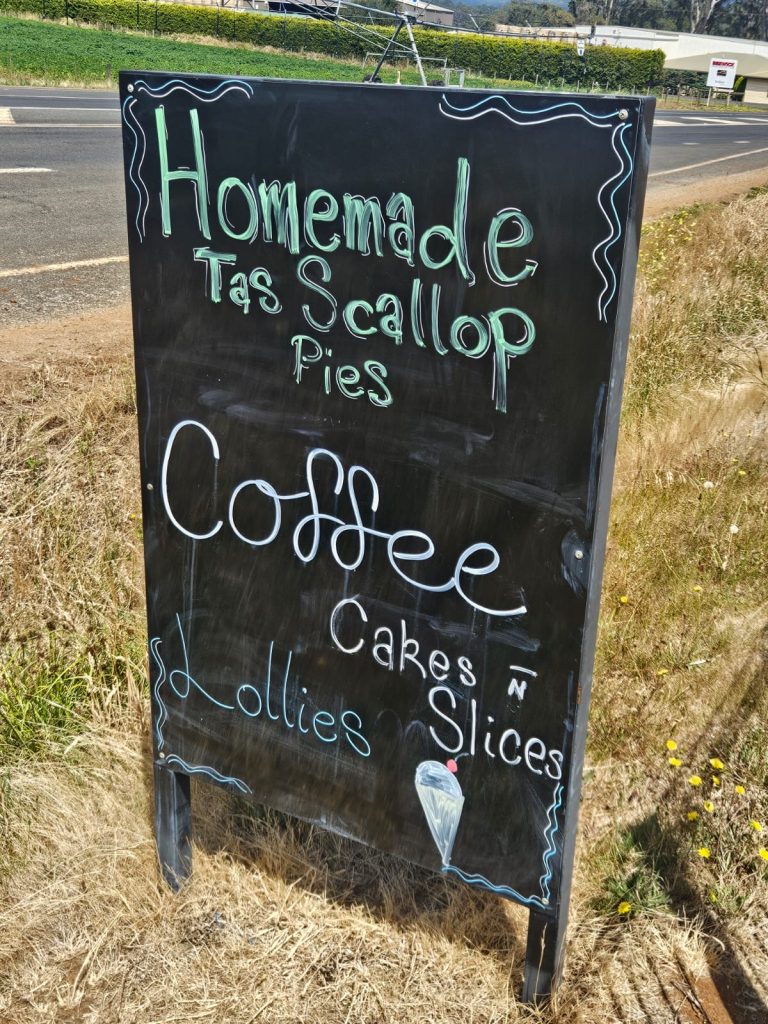 Homemade
Tas Scallop
Pies
Coffee
Cakes N
Slices
Lollies